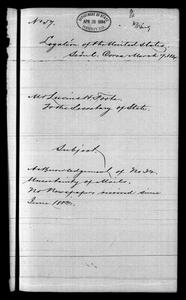 No 57.
APR 28 1884
Legation of the United States,
Seoul. Corea March 7. 1884
Mr Lucius H. Foote
To the Secretary of State.
Subject
Acknowledgement of No. 32
Uncertainty of Mails.
No Newspapers received since
June 1883.